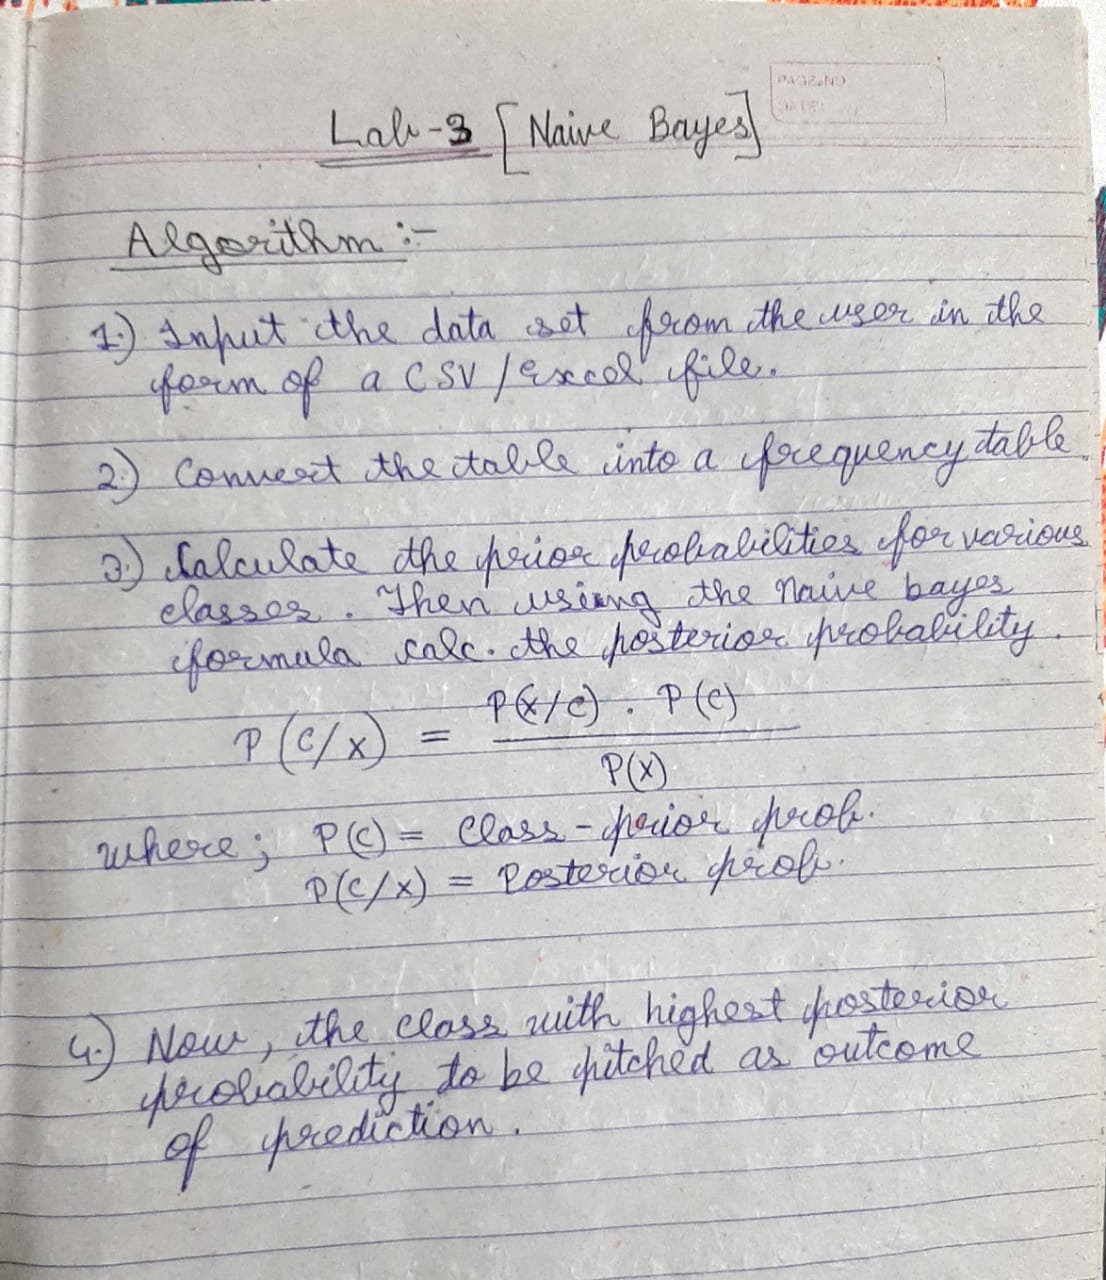 Lab-3 [Naive Bayes]
Algorithm :-
1.) Input the data set from the user in the
form of a CSV/Excel file.
2.) Convert the table into a frequency table.
3.) Calculate the prior probabilities for various
classes. Then using the Naive bayes
formula calc. the posterior probability.
P(C/X) = P(X/C) . P(C)
P(X)
where; P(C) = Class-prior prob.
P(C/X) = Posterior prob.
4.) Now, the class with highest posterior
probability to be pitched as outcome
of prediction.